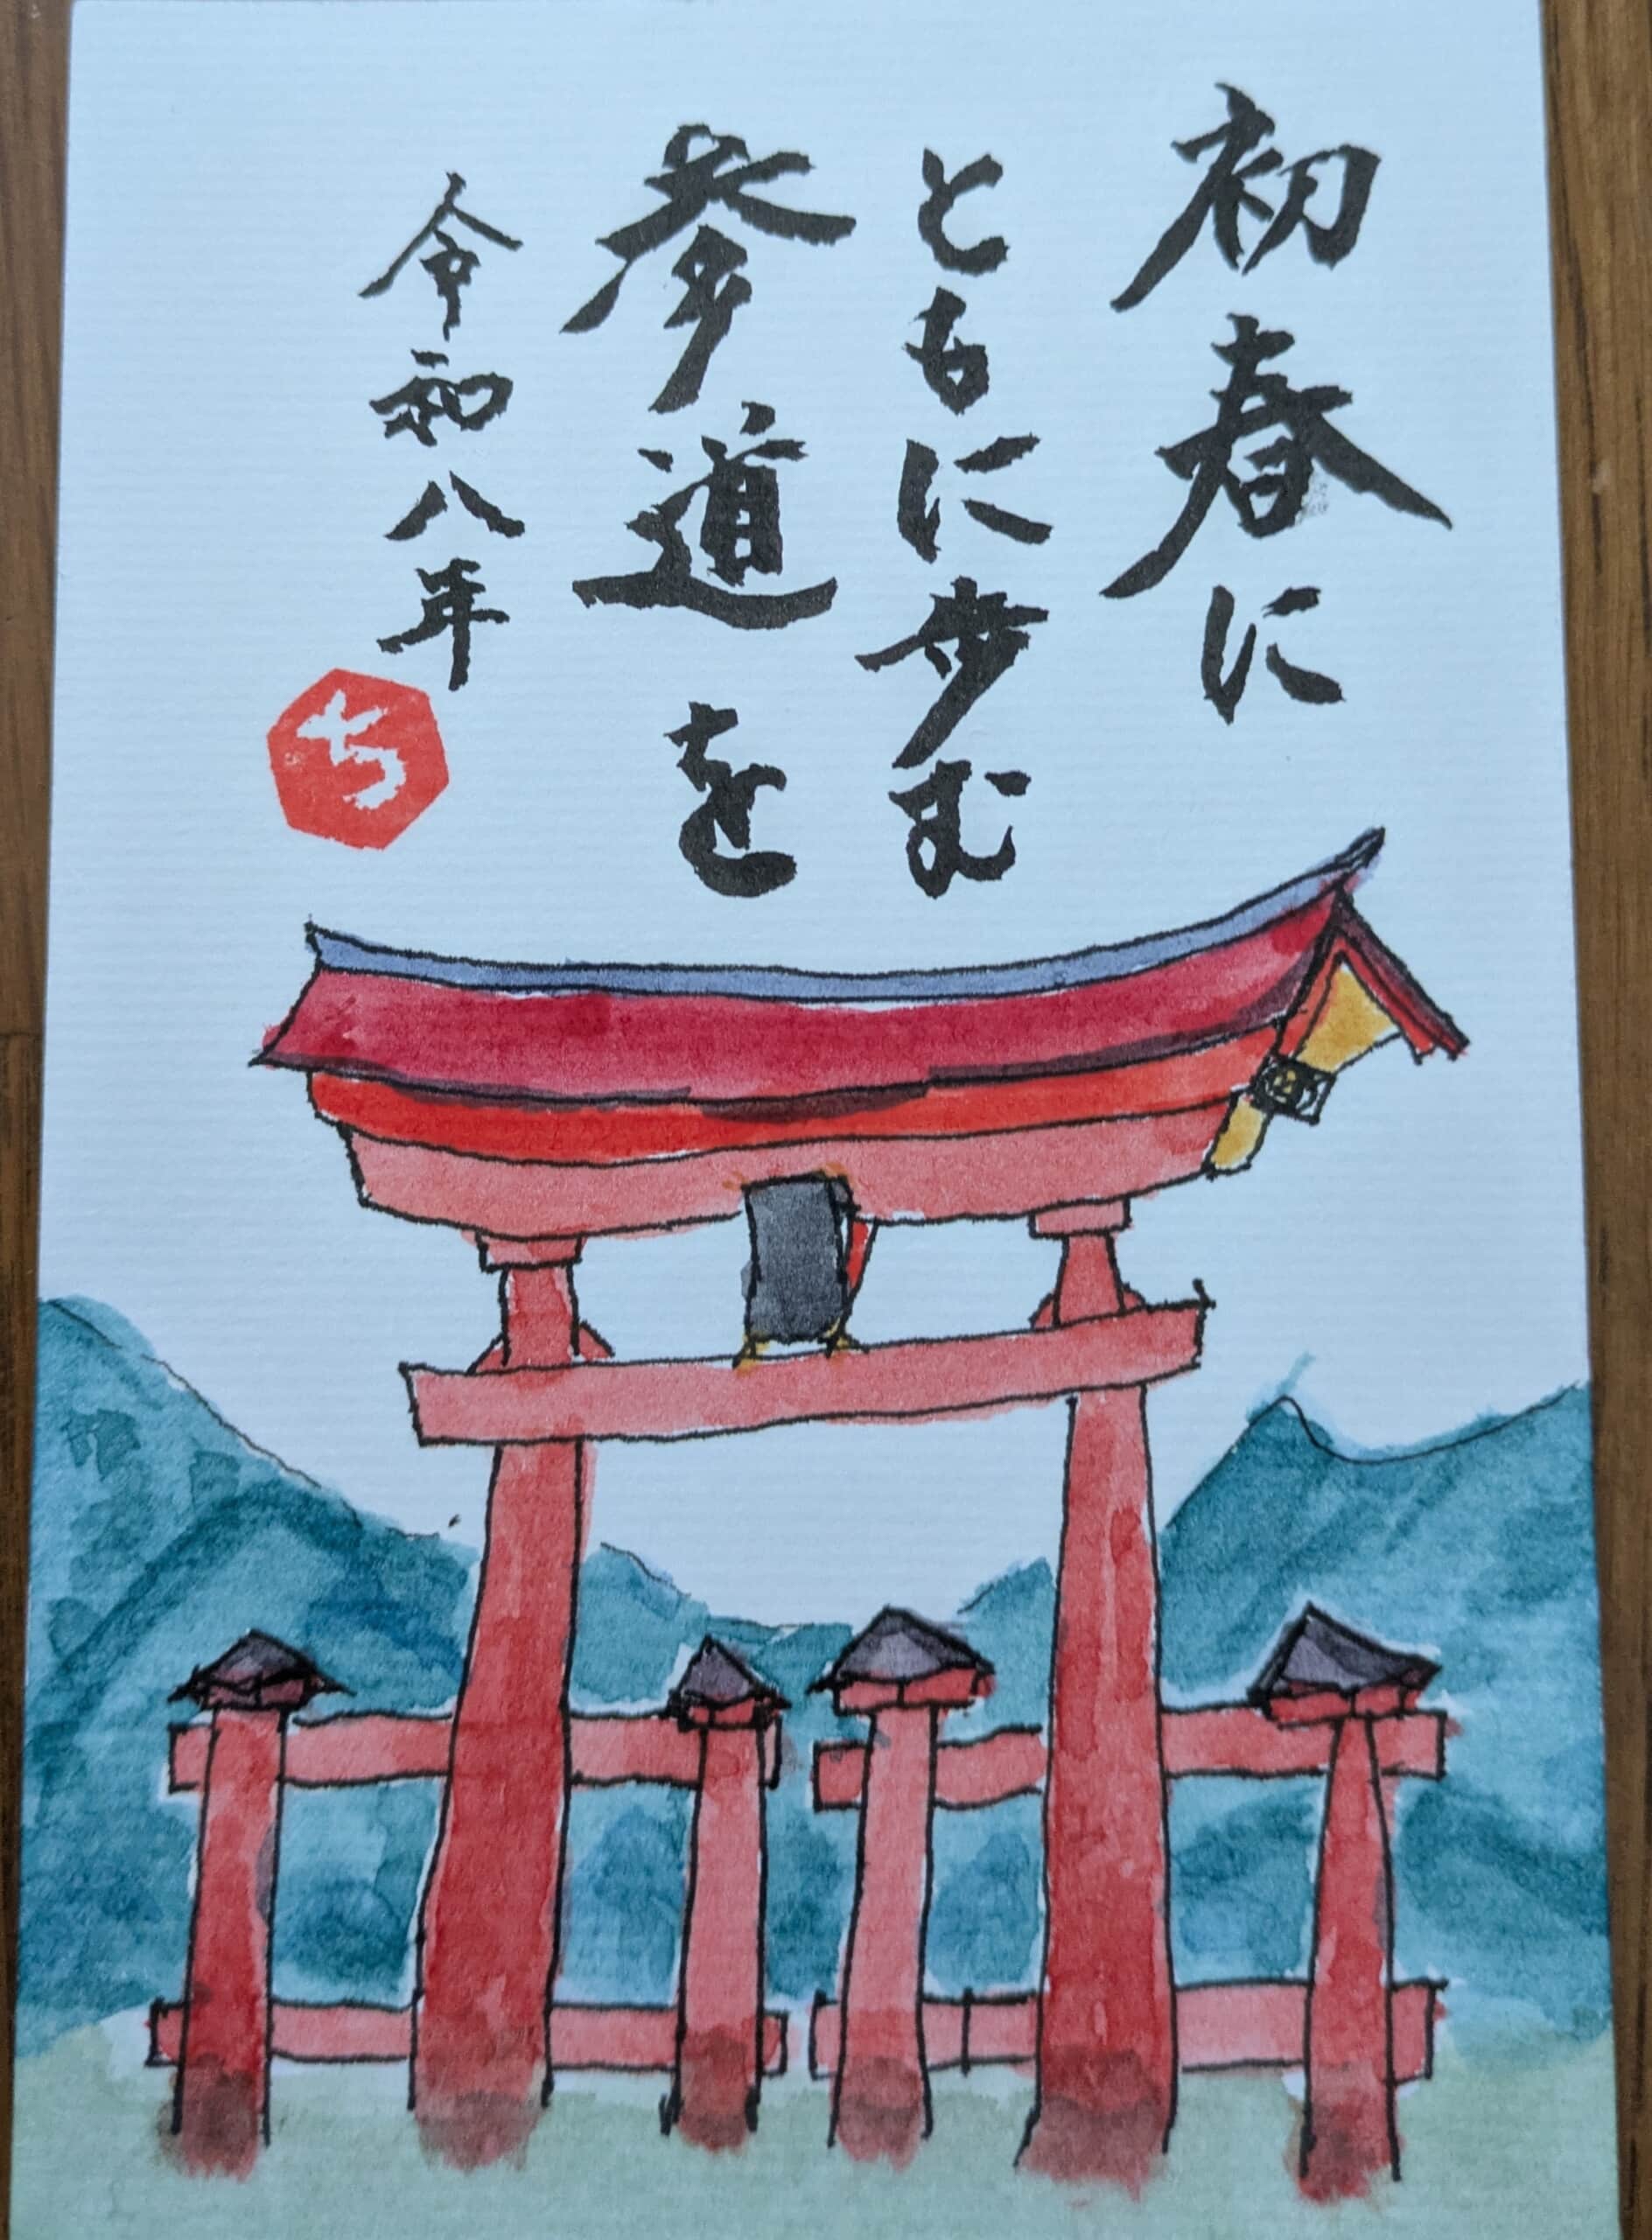 初春に
ともに歩む
参道を
令和八年
ち